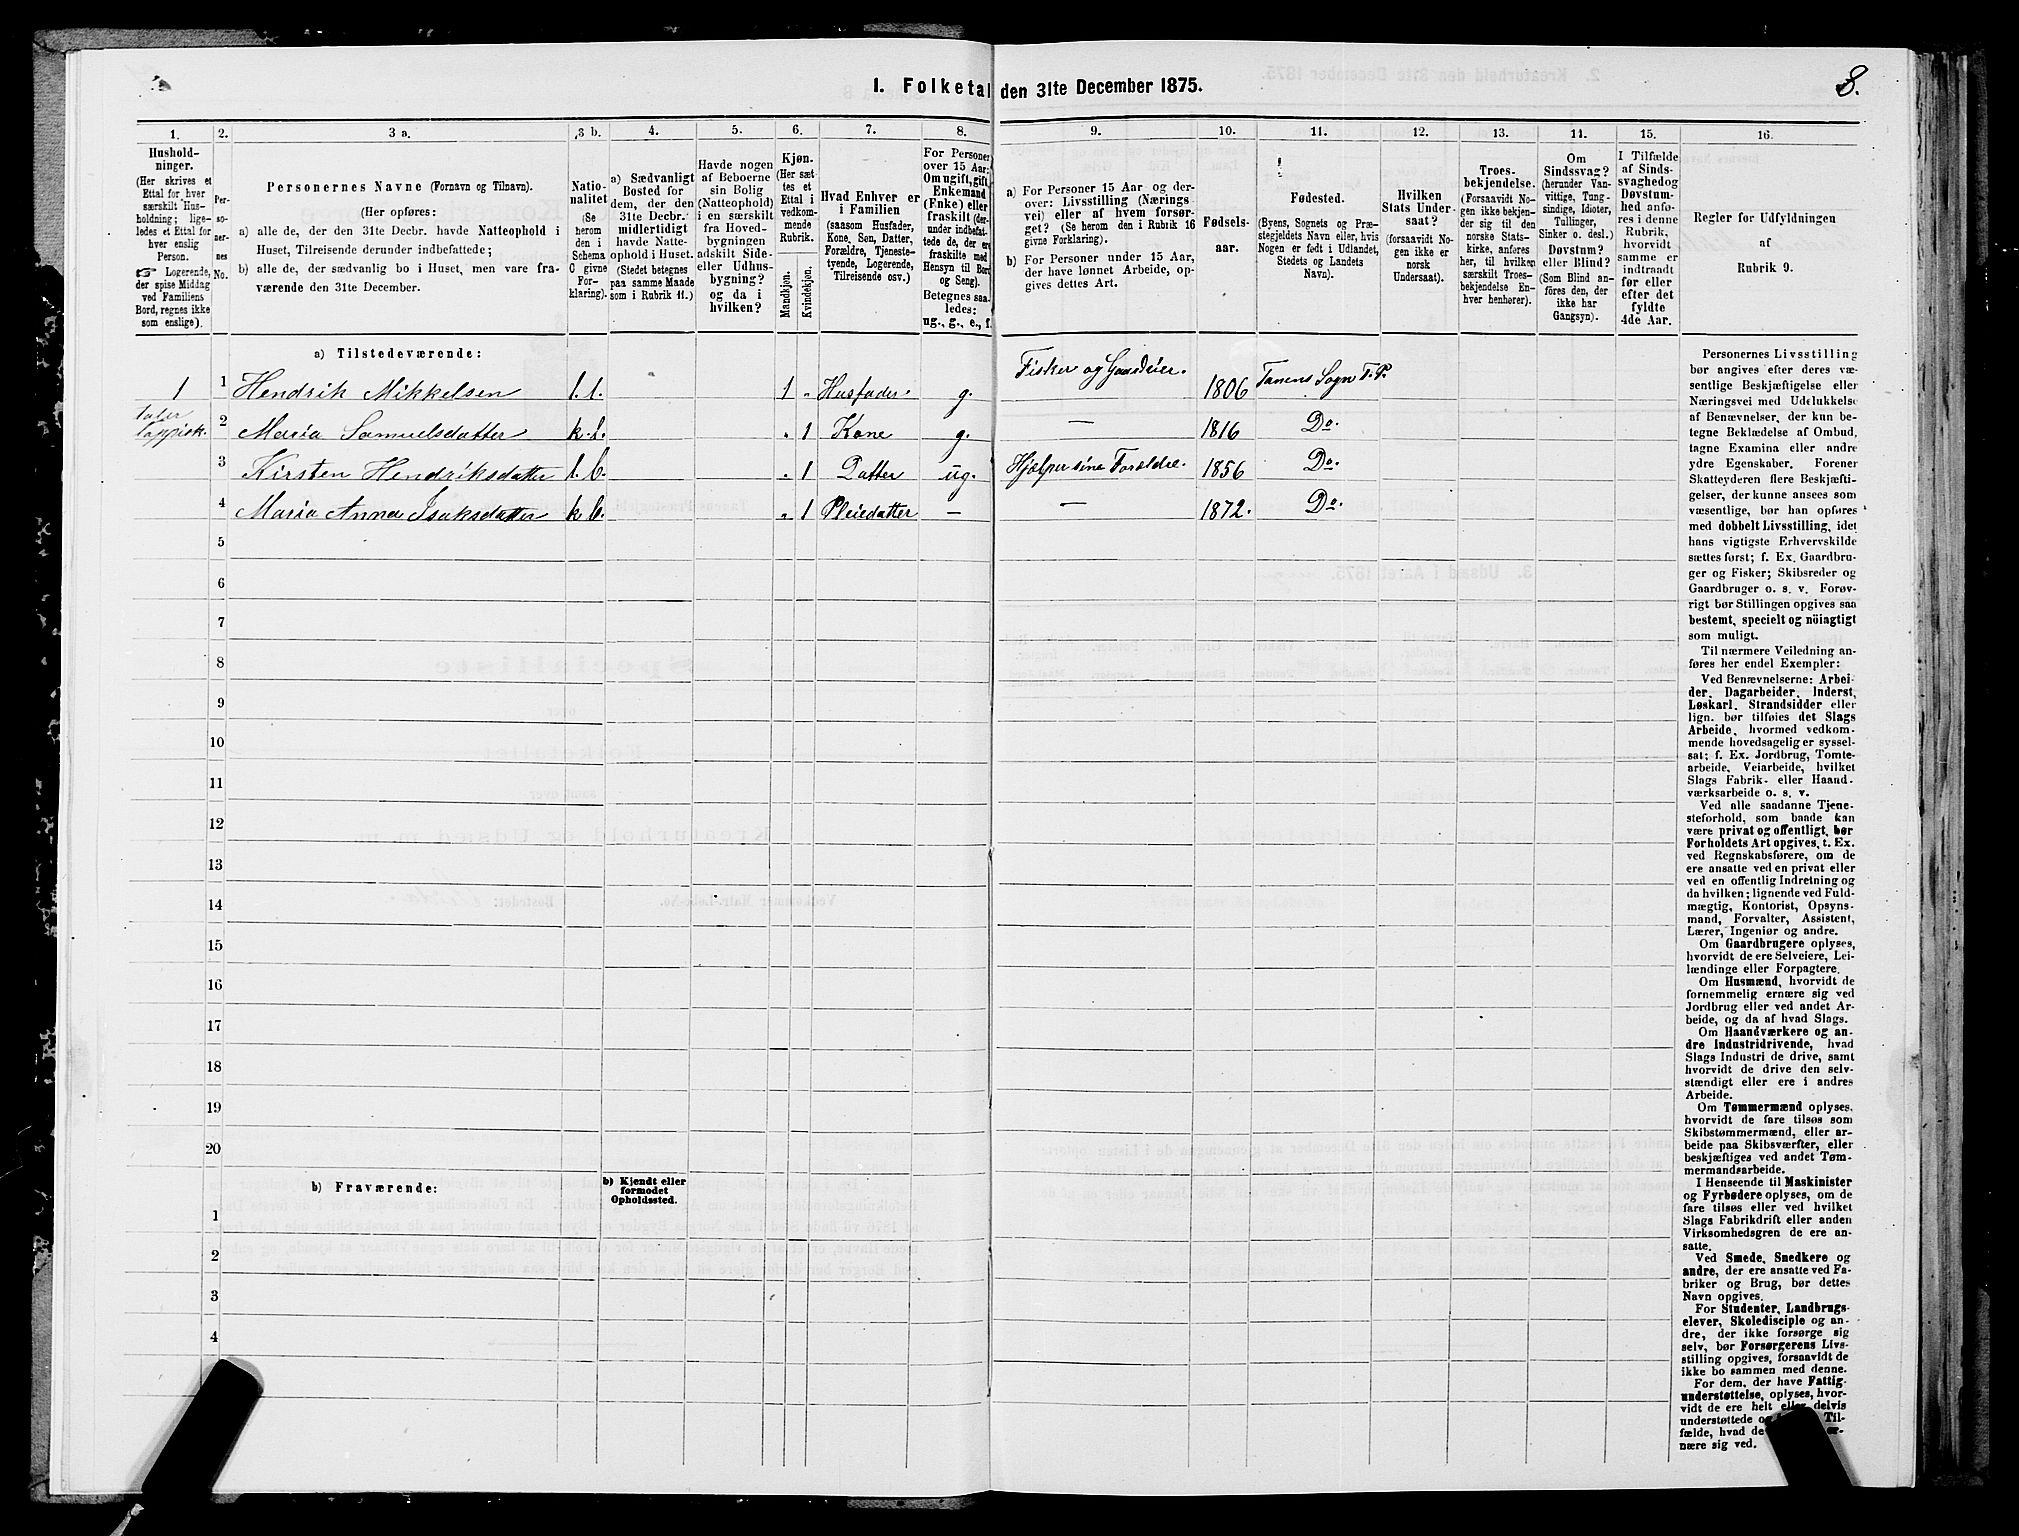 1. Folketal den 31te December 1875.
8.
1.
2.
3 a.
3 b.
4.
5.
6.
7.
8.
9.
10.
11.
12.
13.
14.
15.
16.
Hushold-
ninger.
(Her skrives et
Ettal for hver
særskilt Hus-
holdning; lige-
ledes et Ettal for
hver enslig
Person.
☞ Logerende,
der spise Middag
ved Familiens
Bord, regnes ikke
som enslige).
Per-
so-
ner-
nes
No.
Personernes Navne (Fornavn og Tilnavn).
(Her opføres:
a) alle de, der den 31te Decbr. havde Natteophold i
Huset, Tilreisende derunder indbefattede;
b) alle de, der sædvanlig bo i Huset, men vare fra-
værende den 31te December.
Natio-
nalitet
(Se
herom
den i
Schema
C givne
For-
klaring).
a) Sædvanligt
Bosted for
dem, der den
31te Decbr.
midlertidigt
havde Natte-
ophold i Huset.
(Stedet betegnes
paa samme Maade
som i Rubrik 11.)
Havde nogen
af Beboerne
sin Bolig
(Natteophold)
i en særskilt
fra Hoved-
bygningen
adskilt Side-
eller Udhus-
bygning?
og da i
hvilken?
Kjøn.
(Her sæt-
tes et
Ettal i
vedkom-
mende
Rubrik.
Mandkjøn.
Kvindekjøn.
Hvad Enhver er
i Familien
(saasom Husfader,
Kone, Søn, Datter,
Forældre, Tjeneste-
tyende, Logerende,
Tilreisende osv.)
For Personer
over 15 Aar:
Om ugift, gift,
Enkemand
(Enke) eller
fraskilt (der-
under indbefat-
tede de, der ere
fraskilte med
Hensyn til Bord
og Seng).
Betegnes saa-
ledes:
ug., g., e., f.
a) For Personer 15 Aar og der-
over: Livsstilling (Nærings
vei) eller af hvem forsør-
get? (Se herom den i Rubrik 16
givne Forklaring).
b) For Personer under 15 Aar,
der have lønnet Arbeide, op-
gives dettes Art.
Fødsels-
aar.
Fødested.
(Byens, Sognets og Præ-
stegjeldets Navn eller, hvis
Nogen er født i Udlandet,
Stedets og Landets
Navn).
Hvilken
Stats Under-
saat?
(forsaavidt No-
gen ikke er
norsk
Undersaat).
Troes-
bekjendelse.
(Forsaavidt No-
gen ikke bekjen-
der sig til den
norske Stats-
kirke, anføres
her, til hvilken
særskilt Troes-
bekjendelse En-
hver henhører).
Om
Sindssvag?
(herunder Van-
vittige, Tung-
sindige, Idioter,
Tullinger,
Sinker o. desl.)
Døvstum?
eller Blind?
(Som Blind an-
føres den, der
ikke har
Gangsyn).
I Tilfælde
af Sinds-
svaghed og
Døvstum-
hed anfø-
res i denne
Rubrik,
hvorvidt
samme er
indtraadt
før eller
efter det
fyldte
4de Aar.
Regler for Udfyldningen
af
Rubrik 9.
a) Tilstedeværende:
1 1 Hendrik Mikkelsen l. l. 1 „ Husfader g. Fisker og Gaardeier. 1806 Tanens Sogn T. P.
taler
lappisk. 2 Maria Samuelsdatter k. l. „ 1 Kone g. — 1816 Do.
3 Kirsten Hendriksdatter l. b. „ 1 Datter ug. Hjælper sine Forældre. 1856 Do.
4 Maria Anna Isaksdatter k. b. „ 1 Pleiedatter — — 1872. Do.
5
6
7
8
9
10
11
12
13
14
15
16
17
18
19
20
b) Fraværende:
b) Kjendt eller
formodet
Opholdssted.
1
2
3
4
Personernes Livsstilling
bør angives efter deres væ-
sentlige Beskjæftigelse eller
Næringsvei med Udelukkelse
af Benævnelser, der kun be-
tegne Beklædelse af Ombud,
tagne Examina eller andre
ydre Egenskaber. Forener
Skatteyderen flere Beskjæfti-
gelser, der kunne ansees som
væsentlige, bør han opføres
med dobbelt Livsstilling, idet
hans vigtigste Erhvervskilde
sættes først; f. Ex. Gaardbru-
ger og Fisker; Skibsreder og
Gaardbruger o. s. v. Forøv-
rigt bør Stillingen opgives saa
bestemt, specielt og nöiagtigt
som muligt.
Til nærmere Veiledning an-
føres her endel Exempler:
Ved Benævnelserne: Arbei-
der, Dagarbeider, Inderst,
Løskarl, Strandsidder eller
lign. bør tilføies det Slags
Arbeide, hvormed vedkom-
mende hovedsagelig er syssel-
sat; f. Ex. Jordbrug, Tomte-
arbeide, Veiarbeide, hvilket
Slags Fabrik- eller Haand-
værksarbeide o. s. v.
Ved alle saadanne Tjene-
steforhold, som baade kan
være privat og offentligt, bør
Forholdets Art opgives, t. Ex.
ved Regnskabsførere, om de
ere ansatte ved en privat eller
ved en offentlig Indretning og
da hvilken; lignende ved Fuld-
mægtig, Kontorist, Opsyns-
mand, Forvalter, Assistent,
Lærer, Ingeniør og andre.
Om Gaardbrugere oplyses,
hvorvidt de ere Selveiere, Lei-
lændinge eller Forpagtere.
Om Husmænd, hvorvidt de
fornemmelig ernære sig ved
Jordbrug eller ved andet Ar-
beide, og da af hvad Slags.
Om Haandværkere og an-
dre Industridrivende, hvad
Slags Industri de drive, samt
hvorvidt de drive den selv-
stændigt eller ere i andres
Arbeide.
Om Tømmermænd oplyses,
hvorvidt de fare tilsøs som
Skibstømmermænd, eller ar-
beide paa Skibsværfter, eller
beskjæftiges ved andet Tøm-
mermandsarbeide.
I Henseende til Maskinister
og Fyrbødere oplyses, om de
fare tilsøs eller ved hvilket
Slags Fabrikdrift eller anden
Virksomhedsgren de ere an-
satte.
Ved Smede, Snedkere og
andre, der ere ansatte ved Fa-
briker og Brug, bør dettes
Navn opgives.
For Studenter, Landbrugs-
elever, Skoledisciple og an-
dre, der ikke forsørge sig
selv, bør Forsørgerens Livs-
stilling opgives, forsaavidt de
ikke bo sammen med denne.
For dem, der have Fattig-
understøttelse, oplyses, hvor-
vidt de ere helt eller delvis
understøttede Til-
fælde, hvad de er-
nære sig ved.